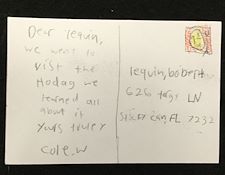 Dear lequin,
we went to
visit the
Hodag we
learned all
about it
yours truley
Cole.W
lequin, bobert
626 LN
FL 7232